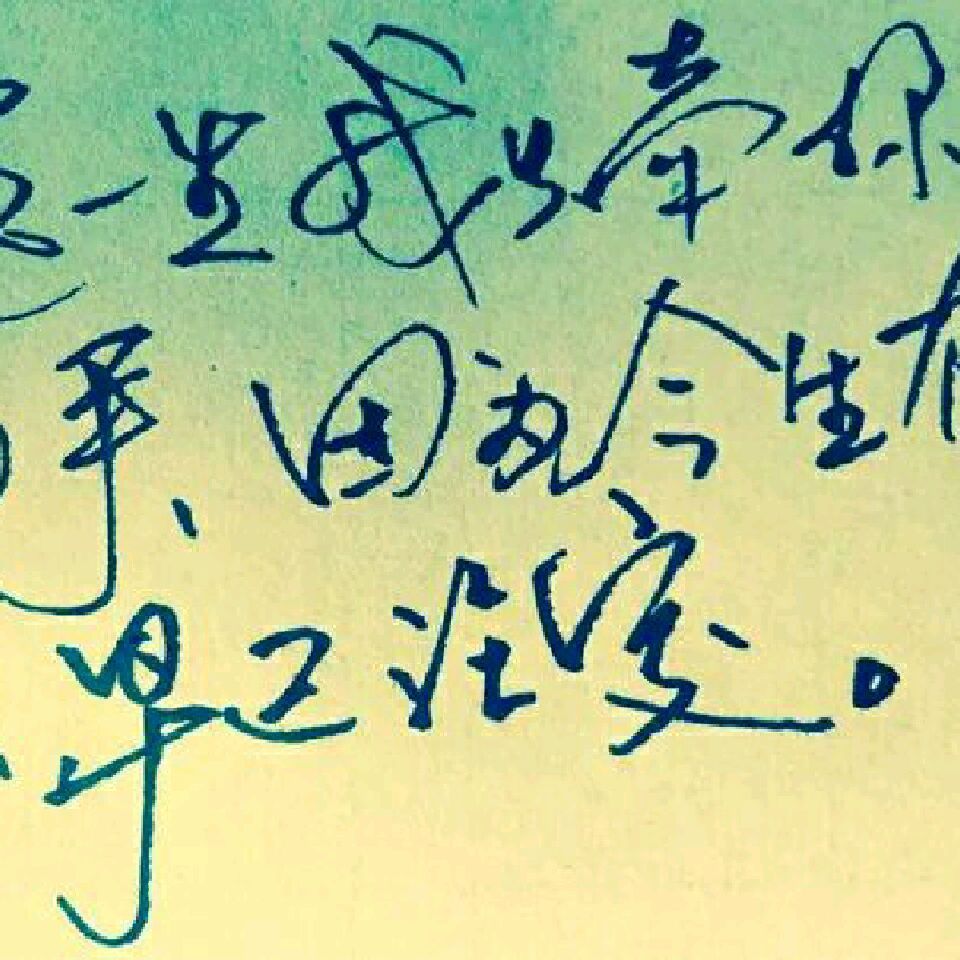 这一生我只牵你
手、因为今生有
早已注定。